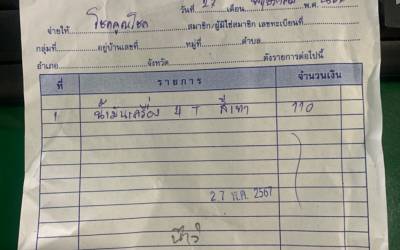 วันที่ 27 เดือน พฤษภาคม พ.ศ.
จ่ายให้ โชคคูณโชค สมาชิก/ผู้มิใช่สมาชิก เลขทะเบียนที่
กลุ่มที่ อยู่บ้านเลขที่ หมู่ที่ ตำบล
อำเภอ จังหวัด ดังรายการต่อไปนี้
ที่ รายการ จำนวนเงิน
1 น้ำมันเครื่อง 4 T สีเทา 110
27 พ.ค. 2567